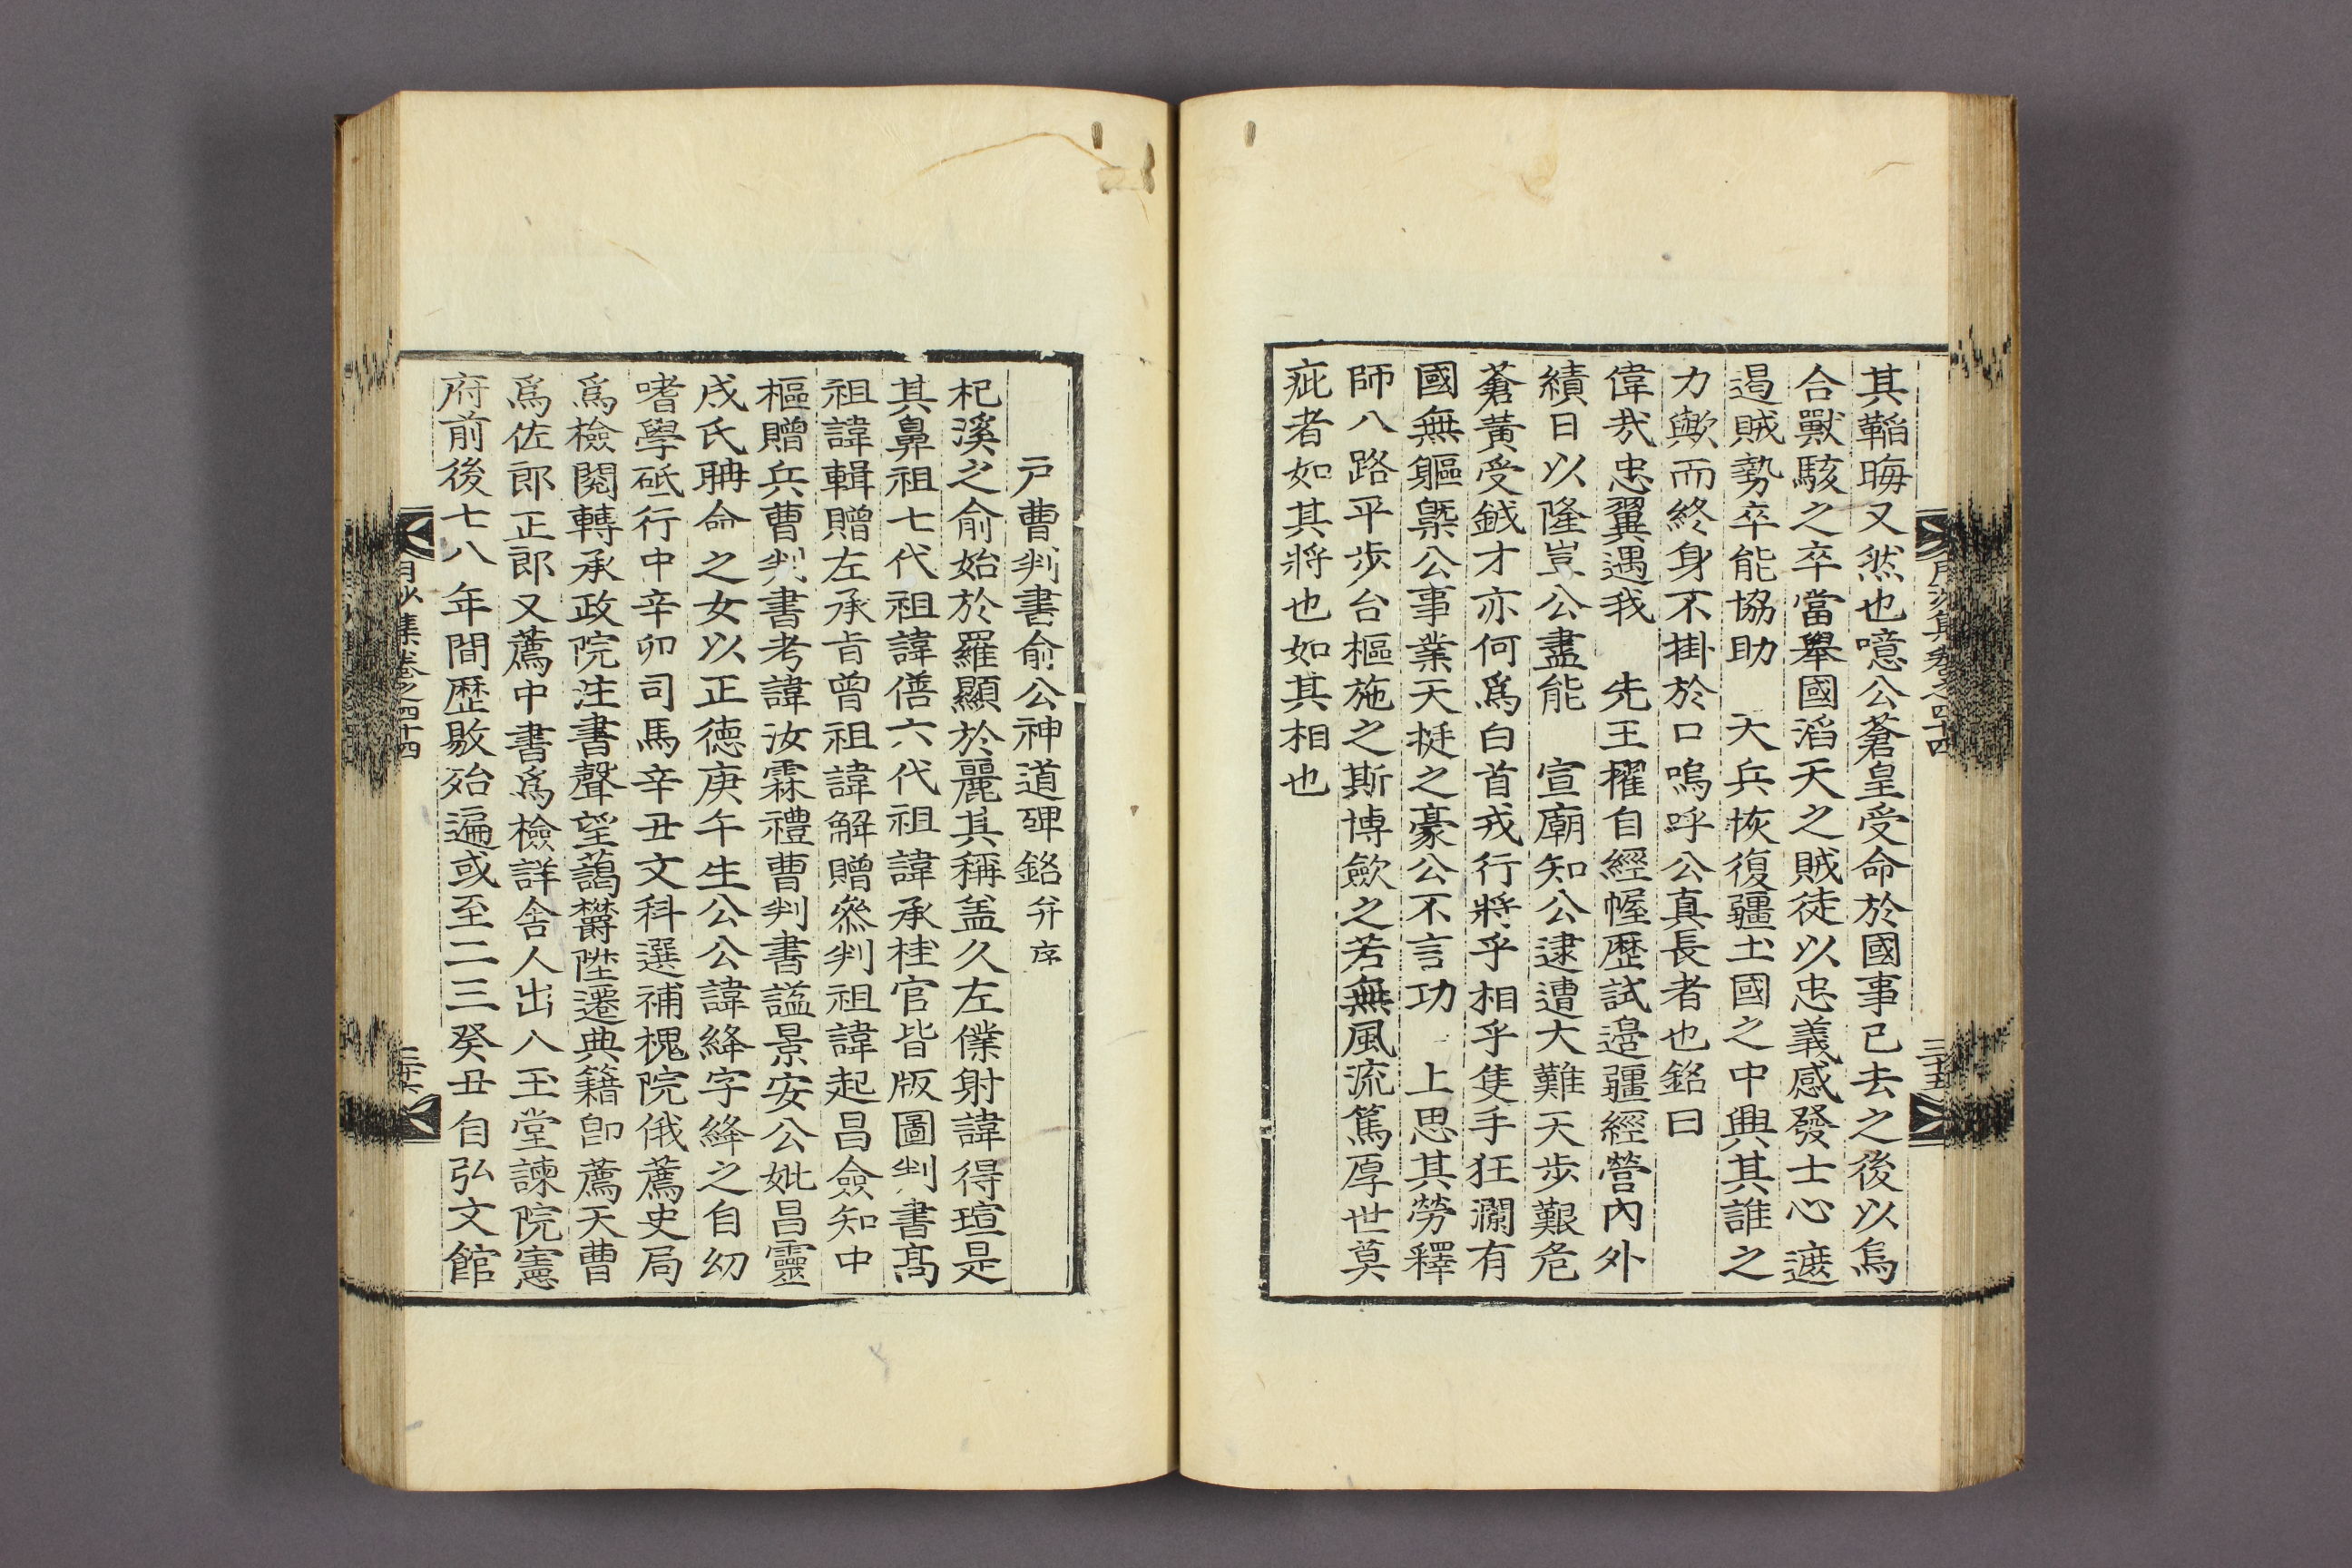 其韜晦又然也噫公蒼皇受命於國事已去之後以烏
合獸駭之卒當舉國滔天之賊徒以忠義感發士心遮
遏賊勢卒能協助 天兵恢復疆土國之中興其誰之
力歟而終身不掛於口嗚呼公真長者也銘曰
偉㢤忠翼遇我 先王擢自經幄歷試邉疆經營內外
績日以隆豈公盡能 宣廟知公逮遭大難天步艱危
蒼黃受鉞才亦何爲白首戎行將乎相乎隻手狂瀾有
國無軀㮣公事業天挺之豪公不言功 上思其勞釋
師八路平步台樞施之斯博歛之若無風流篤厚世莫
疵者如其將也如其相也
月沙集卷之四十四
三十五
戶曹判書俞公神道碑銘 并序
杞溪之俞始於羅顯於麗其稱盖久左僕射諱得瑄是
其鼻祖七代祖諱僐六代祖諱承桂官皆版圖判書高
祖諱輯贈左承旨曾祖諱解贈叅判祖諱起昌僉知中
樞贈兵曹判書考諱汝霖禮曹判書謚景安公妣昌靈
成氏聃命之女以正德庚午生公公諱絳字絳之自幼
嗜學砥行中辛卯司馬辛丑文科選補槐院俄薦史局
爲檢閱轉承政院注書聲望藹欝陞遷典籍卽薦天曹
爲佐郎正郎又薦中書爲檢詳舍人出入玉堂諫院憲
府前後七八年間歷敭殆遍或至二三癸丑自弘文館
月沙集卷之四十四
三十六